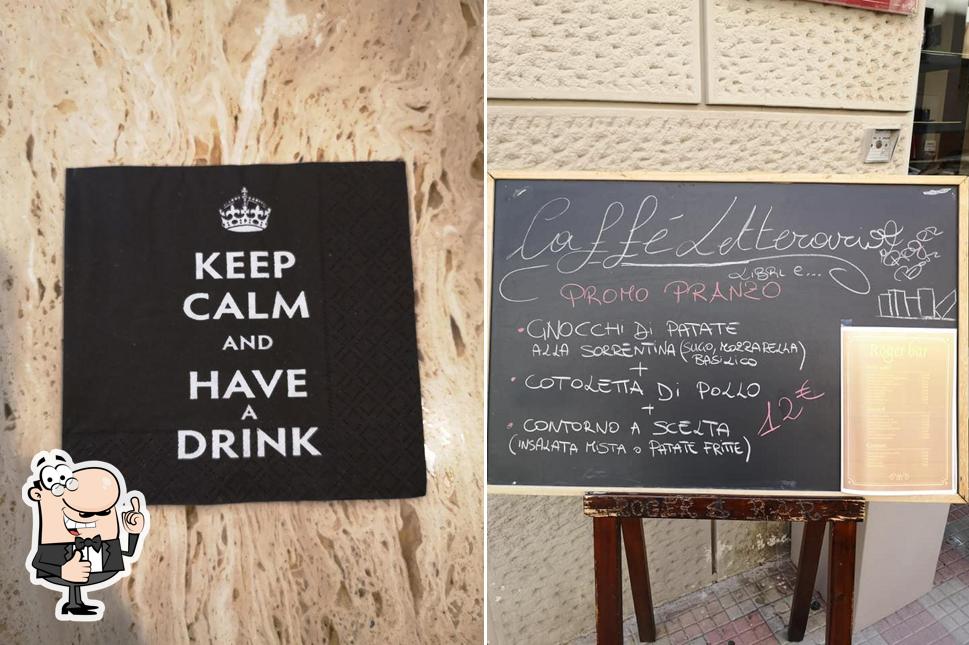 KEEP
CALM
AND
HAVE
A
DRINK
Caffé Letterario
LIBRI E...
PROMO PRANZO
• GNOCCHI Di PATATE
ALLA SORRENTINA (SUGO, MOZZARELLA)
BASILICO
+
• COTOLETTA Di POLLO
+
• CONTORNO A SCELTA
(INSALATA MISTA o PATATE FRITTE)
12€
Roger bar
ROGER'S BAR